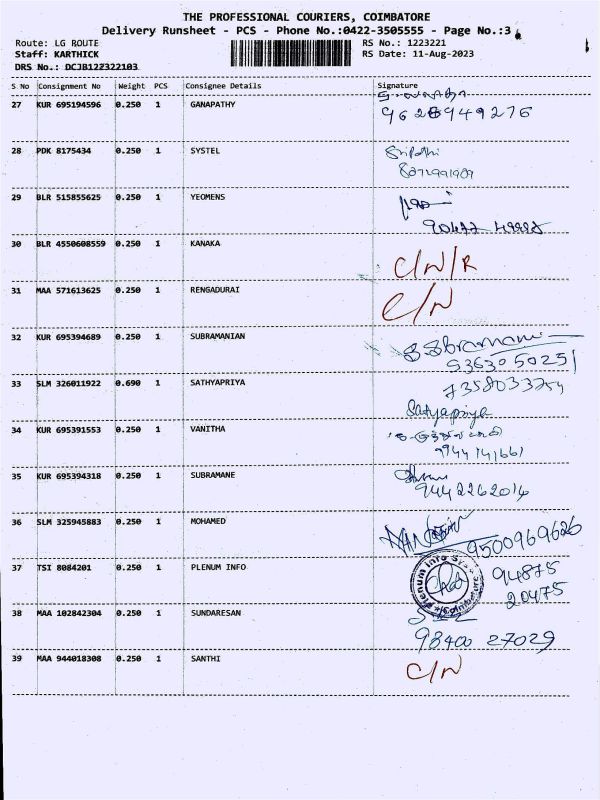 THE PROFESSIONAL COURIERS, COIMBATORE
Delivery Runsheet - PCS - Phone No.:0422-3505555 - Page No.:3
Route: LG ROUTE RS No.: 1223221
Staff: KARTHICK RS Date: 11-Aug-2023
DRS No.: DCJB122322103
S No Consignment No Weight PCS Consignee Details Signature
27 KUR 695194596 0.250 1 GANAPATHY
28 PDK 8175434 0.250 1 SYSTEL
29 BLR 515855625 0.250 1 YEOMENS
30 BLR 4550608559 0.250 1 KANAKA C/N/R
31 MAA 571613625 0.250 1 RENGADURAI C/N
32 KUR 695394689 0.250 1 SUBRAMANIAN
9363050251
33 SLM 326011922 0.690 1 SATHYAPRIYA 7358033754
Satyapriya
34 KUR 695391553 0.250 1 VANITHA
9944141661
35 KUR 695394318 0.250 1 SUBRAMANE
9442262016
36 SLM 325945883 0.250 1 MOHAMED
9500969626
37 TSI 8084201 0.250 1 PLENUM INFO 94875
20475
Plenum Info
Coimbatore
38 MAA 102842304 0.250 1 SUNDARESAN
9840 27029
39 MAA 944018308 0.250 1 SANTHI C/N